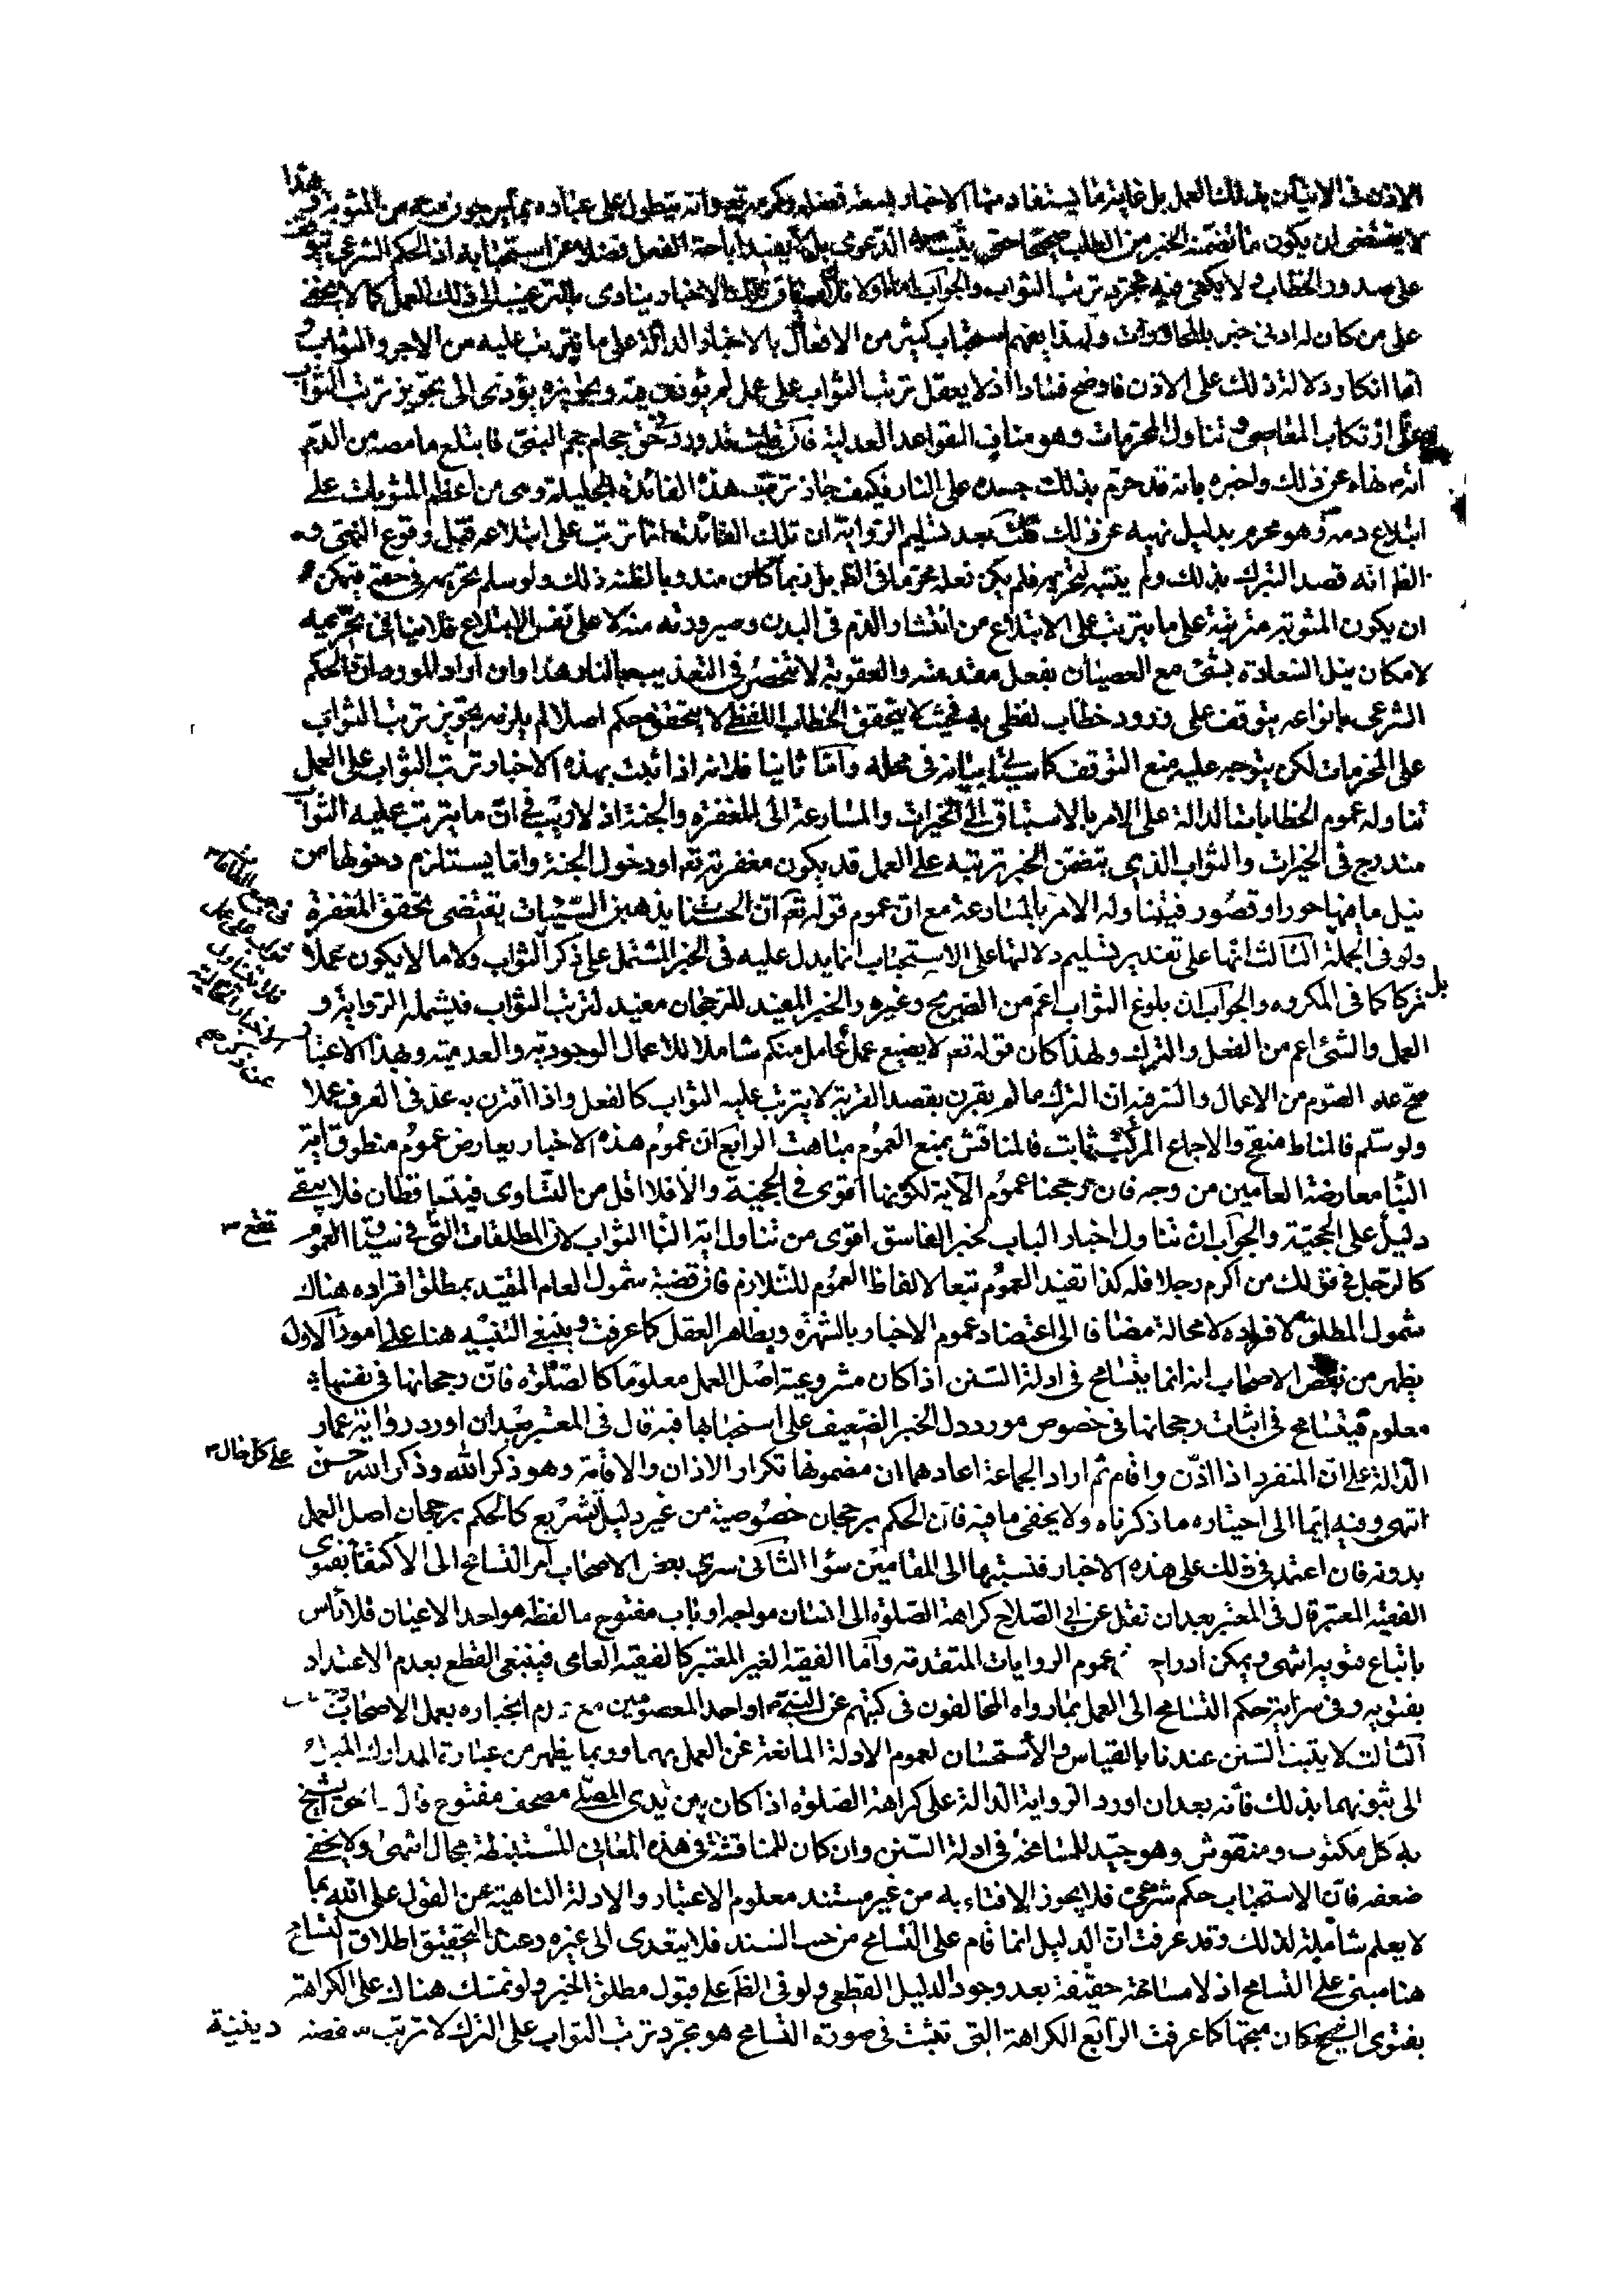 الاذن فى الاتيان بذلك العمل بل غاية ما يستفاد منها الاخبار بسعة فضله وكرمه تع وانه يتطول على عباده بما يرجون منه من المثوبة وهذا
لا يقتضى ان يكون ما تضمنه الخبر من الطلب صحيحا حتى يثبت الدعوى بل لا يفيد اباحة الفعل فضلا عن استحبابه اذ الحكم الشرعى يتوقف
على صدور الخطاب ولا يكفى فيه مجرد ترتب الثواب والجواب اما اولا فلان سياق تلك الاخبار ينادى بالترغيب الى ذلك العمل كما لا يخفى
على من كان له ادنى خبر بالمحاورات ولذا يفهم استحباب كثير من الافعال بالاخبار الدالة على ما يترتب عليه من الاجر والثواب و
اما انكار دلالة ذلك على الاذن فاوضح فسادا اذ لا يعقل ترتب الثواب على عمل لم يؤذن فيه وتجويزه يؤدى الى تجويز ترتب الثواب
على ارتكاب المعاصى وتناول المحرمات وهو مناف للقواعد العدلية فان قلت قد ورد فى حق حجام حجم النبى فابتلع ما مصه من الدم
انه نهاه عن ذلك واخبره بانه قد حرم بذلك جسده على النار فكيف جاز ترتب هذه الفائدة الجليلة وهى من اعظم المثوبات على
ابتلاع دمه وهو محرم بدليل نهيه عن ذلك قلت بعد تسليم الرواية ان تلك الفائدة انما ترتب على ابتلاعه قبل وقوع النهى و
الظ انه قصد التبرك بذلك ولم يتنبه لتحريمه فلم يكن فعله محرما فى الظ بل ربما كان مندوبا لظنه ذلك ولو سلم تحريمه فى حقه فيمكن
ان يكون المثوبة مترتبة على ما يترتب على الابتلاع من انتشار الدم فى البدن وصيرورته منه لا على نفس الابتلاع فلا ينافى تحريمه
لامكان نيل السعادة بشئ مع العصيان بفعل مقدمته والعقوبة لا تنحصر فى التعذيب بالنار هذا وان اراد المورد ان الحكم
الشرعى بانواعه يتوقف على ورود خطاب لفظى به فحيث لا يتحقق الخطاب اللفظى لا يتحقق حكم اصلا لم يلزمه تجويز ترتب الثواب
على المحرمات لكن يتوجه عليه منع التوقف كما سيأتى بيانه فى محله واما ثانيا فلانه اذا ثبت بهذه الاخبار ترتب الثواب على العمل
تناوله عموم الخطابات الدالة على الامر بالاستباق الى الخيرات والمسارعة الى المغفرة والجنة اذ لا ريب فى ان ما يترتب عليه الثواب
مندرج فى الخيرات والثواب الذى يتضمن الخبر ترتبه على العمل قد يكون مغفرته تع او دخول الجنة واما يستلزم دخولها من
نيل ما فيها حور او قصور فيتناوله الامر بالمسارعة مع ان عموم قوله تع ان الحسنات يذهبن السيئات يقتضى تحقق المغفرة
ولو فى الجملة الثالث انها على تقدير تسليم دلالتها على الاستحباب انما يدل عليه فى الخبر المشتمل على ذكر الثواب ولا ما لا يكون عملا
بل تركا كما فى المكروه والجواب ان بلوغ الثواب اعم من الصريح وغيره والخبر المفيد للرجحان مفيد لترتب الثواب فيشمله الرواية و
العمل والشئ اعم من الفعل والترك ولهذا كان قوله تع لا يضيع عمل عامل منكم شاملا للاعمال الوجودية والعدمية وبهذا الاعتبار
صح عد الصوم من الاعمال والسر فيه ان الترك ما لم يقرن بقصد القربة لا يترتب عليه الثواب كالفعل واذا اقترن به عد فى العرف عملا
ولو سلم فالمناط منقح والاجماع المركب ثابت فالمناقش بمنع العموم مباهت الرابع ان عموم هذه الاخبار يعارض عموم منطوق اية
النبأ معارضة العامين من وجه فان رجحنا عموم الآية لكونها اقوى فى الحجية والا فلا اقل من التساوى فيتساقطان فلا يبقى
دليل على الحجية والجواب ان تناول اخبار الباب لخبر الفاسق اقوى من تناول اية النبأ الثواب لان المطلقات التى تقع فى سياق العموم
كالرجل فى قولك من اكرم رجلا فله كذا تفيد العموم تبعا لالفاظ العموم للتلازم فان قضية شمول العام المقيد بمطلق افراده هناك
شمول المطلق لافراده لا محالة مضافا الى اعتضاد عموم الاخبار بالشهرة وبظاهر العقل كما عرفت وينبغى التنبيه هنا على امور الاول
يظهر من بعض الاصحاب انه انما يتسامح فى ادلة السنن اذا كان مشروعية اصل العمل معلوما كالصلوة فان رجحانها فى نفسها
معلوم فيتسامح فى اثبات رجحانها فى خصوص مورد دل الخبر الضعيف على استحبابها فيه قال فى المعتبر بعد ان اورد رواية عمار
الدالة على ان المنفرد اذا اذن واقام ثم اراد الجماعة اعادهما ان مضمونها تكرار الاذان والاقامة وهو ذكر الله وذكر الله حسن على كل حال
انتهى وفيه ايماء الى اختياره ما ذكرناه ولا يخفى ما فيه فان الحكم برجحان خصوصية من غير دليل تشريع كالحكم برجحان اصل العمل
بدونه فان اعتمد فى ذلك على هذه الاخبار فنسبتها الى المقامين سواء الثانى سرى بعض الاصحاب امر التسامح الى الاكتفاء بفتوى
الفقيه المعتبر قال فى المعتبر بعد ان نقل عن ابى الصلاح كراهة الصلوة الى انسان مواجه او باب مفتوح ما لفظه هو احد الاعيان فلا بأس
باتباع فتويه انتهى ويمكن ادراج عموم الروايات المتقدمة واما الفقيه الغير المعتبر كالفقيه العامى فينبغى القطع بعدم الاعتداد
بفتويه وفى سراية حكم التسامح الى العمل بما رواه المخالفون فى كتبهم عن النبى او احد المعصومين مع عدم انجباره بعمل الاصحاب
الثالث لا يثبت السنن عندنا بالقياس والاستحسان لعموم الادلة المانعة عن العمل بهما وربما يظهر من عبارة المدارك الميل
الى ثبوتهما بذلك فانه بعد ان اورد الرواية الدالة على كراهة الصلوة اذا كان بين يدى المصلى مصحف مفتوح قال الحق الشيخ
به كل مكتوب ومنقوش وهو جيد للمسامحة فى ادلة السنن وان كان للمناقشة فى هذه المعانى المستنبطة مجال انتهى ولا يخفى
ضعفه فان الاستحباب حكم شرعى فلا يجوز الافتاء به من غير مستند معلوم الاعتبار والادلة الناهية عن القول على الله بما
لا يعلم شاملة لذلك وقد عرفت ان الدليل انما قام على التسامح من حيث السند فلا يتعدى الى غيره وعند التحقيق اطلاق التسامح
هنا مبنى على التسامح اذ لا مسامحة حقيقة بعد وجود الدليل القطعى ولو فى الظ على قبول مطلق الخبر ولو تمسك هناك على الكراهة
بفتوى الشيخ كان متجها كما عرفت الرابع الكراهة التى تثبت فى صورة التسامح هو مجرد ترتب الثواب على الترك لا ترتب منقصة دينية